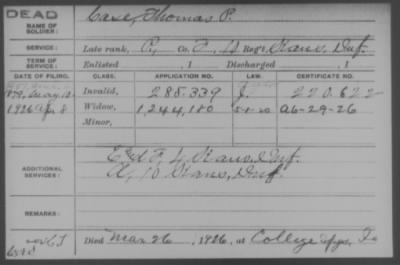 DEAD
NAME OF SOLDIER: Case, Thomas P.
SERVICE: Late rank, P, Co. F, 4 Reg't Kans. Inf.
TERM OF SERVICE: Enlisted , 1 Discharged , 1
DATE OF FILING. CLASS. APPLICATION NO. LAW. CERTIFICATE NO.
1879, May 12 Invalid, 285.339 220.622
1926 Apr 8 Widow, 1,244,180 5-1-20 A6-29-26
Minor,
ADDITIONAL SERVICES: F, 4 Kans. Inf.
A, 10 Kans. Inf.
REMARKS:
Died Mar 26, 1926, at College Spgs, Ia